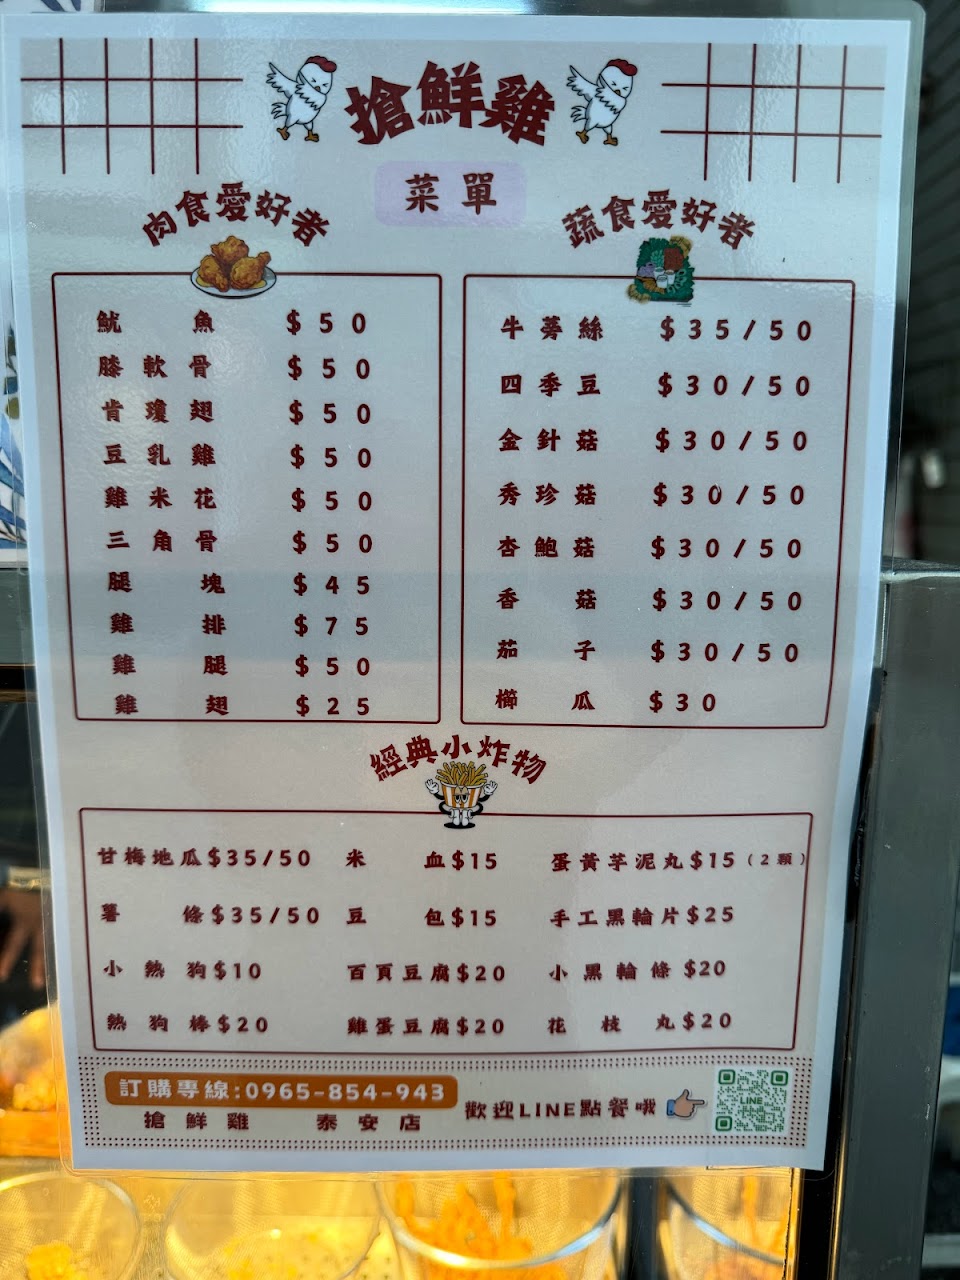 搶鮮雞
菜單
肉食愛好者
魷魚 $50
膝軟骨 $50
肯瓊翅 $50
豆乳雞 $50
雞米花 $50
三角骨 $50
腿塊 $45
雞排 $75
雞腿 $50
雞翅 $25
蔬食愛好者
牛蒡絲 $35/50
四季豆 $30/50
金針菇 $30/50
秀珍菇 $30/50
杏鮑菇 $30/50
香菇 $30/50
茄子 $30/50
櫛瓜 $30
經典小炸物
甘梅地瓜$35/50 米血$15 蛋黃芋泥丸$15(2顆)
薯條$35/50 豆包$15 手工黑輪片$25
小熱狗$10 百頁豆腐$20 小黑輪條$20
熱狗棒$20 雞蛋豆腐$20 花枝丸$20
訂購專線:0965-854-943
搶鮮雞 泰安店
歡迎LINE點餐哦
LINE